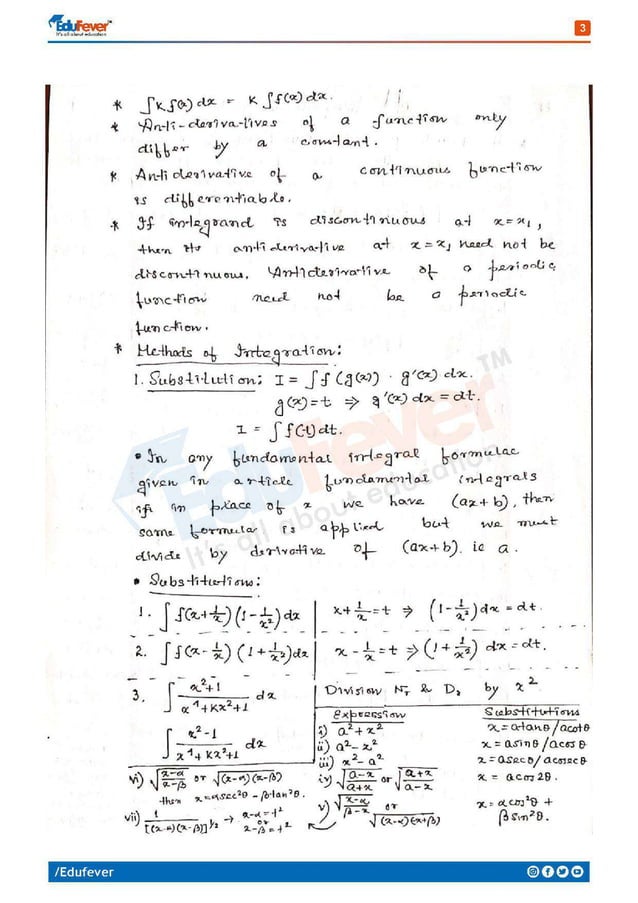 EduFever™
It's all about education
3
* ∫K f(x) dx = K ∫f(x) dx.
* Anti-derivatives of a function only
differ by a constant.
* Antiderivative of a continuous function
is differentiable.
* If integrand is discontinuous at x=x₁,
then its antiderivative at x=x₁ need not be
discontinuous. Antiderivative of a periodic
function need not be a periodic
function.
* Methods of Integration:
1. Substitution: I = ∫f(g(x)) · g'(x) dx.
g(x)=t ⇒ g'(x) dx = dt.
I = ∫f(t)dt.
• In any fundamental integral formulae
given in article fundamental integrals
if in place of x we have (ax+b), then
same formula is applied but we must
divide by derivative of (ax+b). ie a.
• Substitutions:
1. ∫f(x+1/x) (1-1/x²) dx | x+1/x=t ⇒ (1-1/x²)dx = dt.
2. ∫f(x-1/x) (1+1/x²)dx | x-1/x=t ⇒ (1+1/x²) dx = dt.
3. ∫ (x²+1)/(x⁴+Kx²+1) dx | Division Nr & Dr by x²
∫ (x²-1)/(x⁴+Kx²+1) dx
Expression Substitutions
i) a²+x² x=atanθ/acotθ
ii) a²-x² x=asinθ/acosθ
iii) x²-a² x=asecθ/acosecθ
iv) √((a-x)/(a+x)) or √((a+x)/(a-x)) x = acos2θ.
v) √((x-α)/(β-x)) or √((x-α)(x+β)) x=αcos²θ + βsin²θ.
vi) √((x-α)/(x-β)) or √((x-α)(x-β))
then x=αsec²θ-βtan²θ.
vii) 1/[(x-α)(x-β)]^1/2 → x-α=t² or x-β=t²
EduFever™
It's all about education
/Edufever